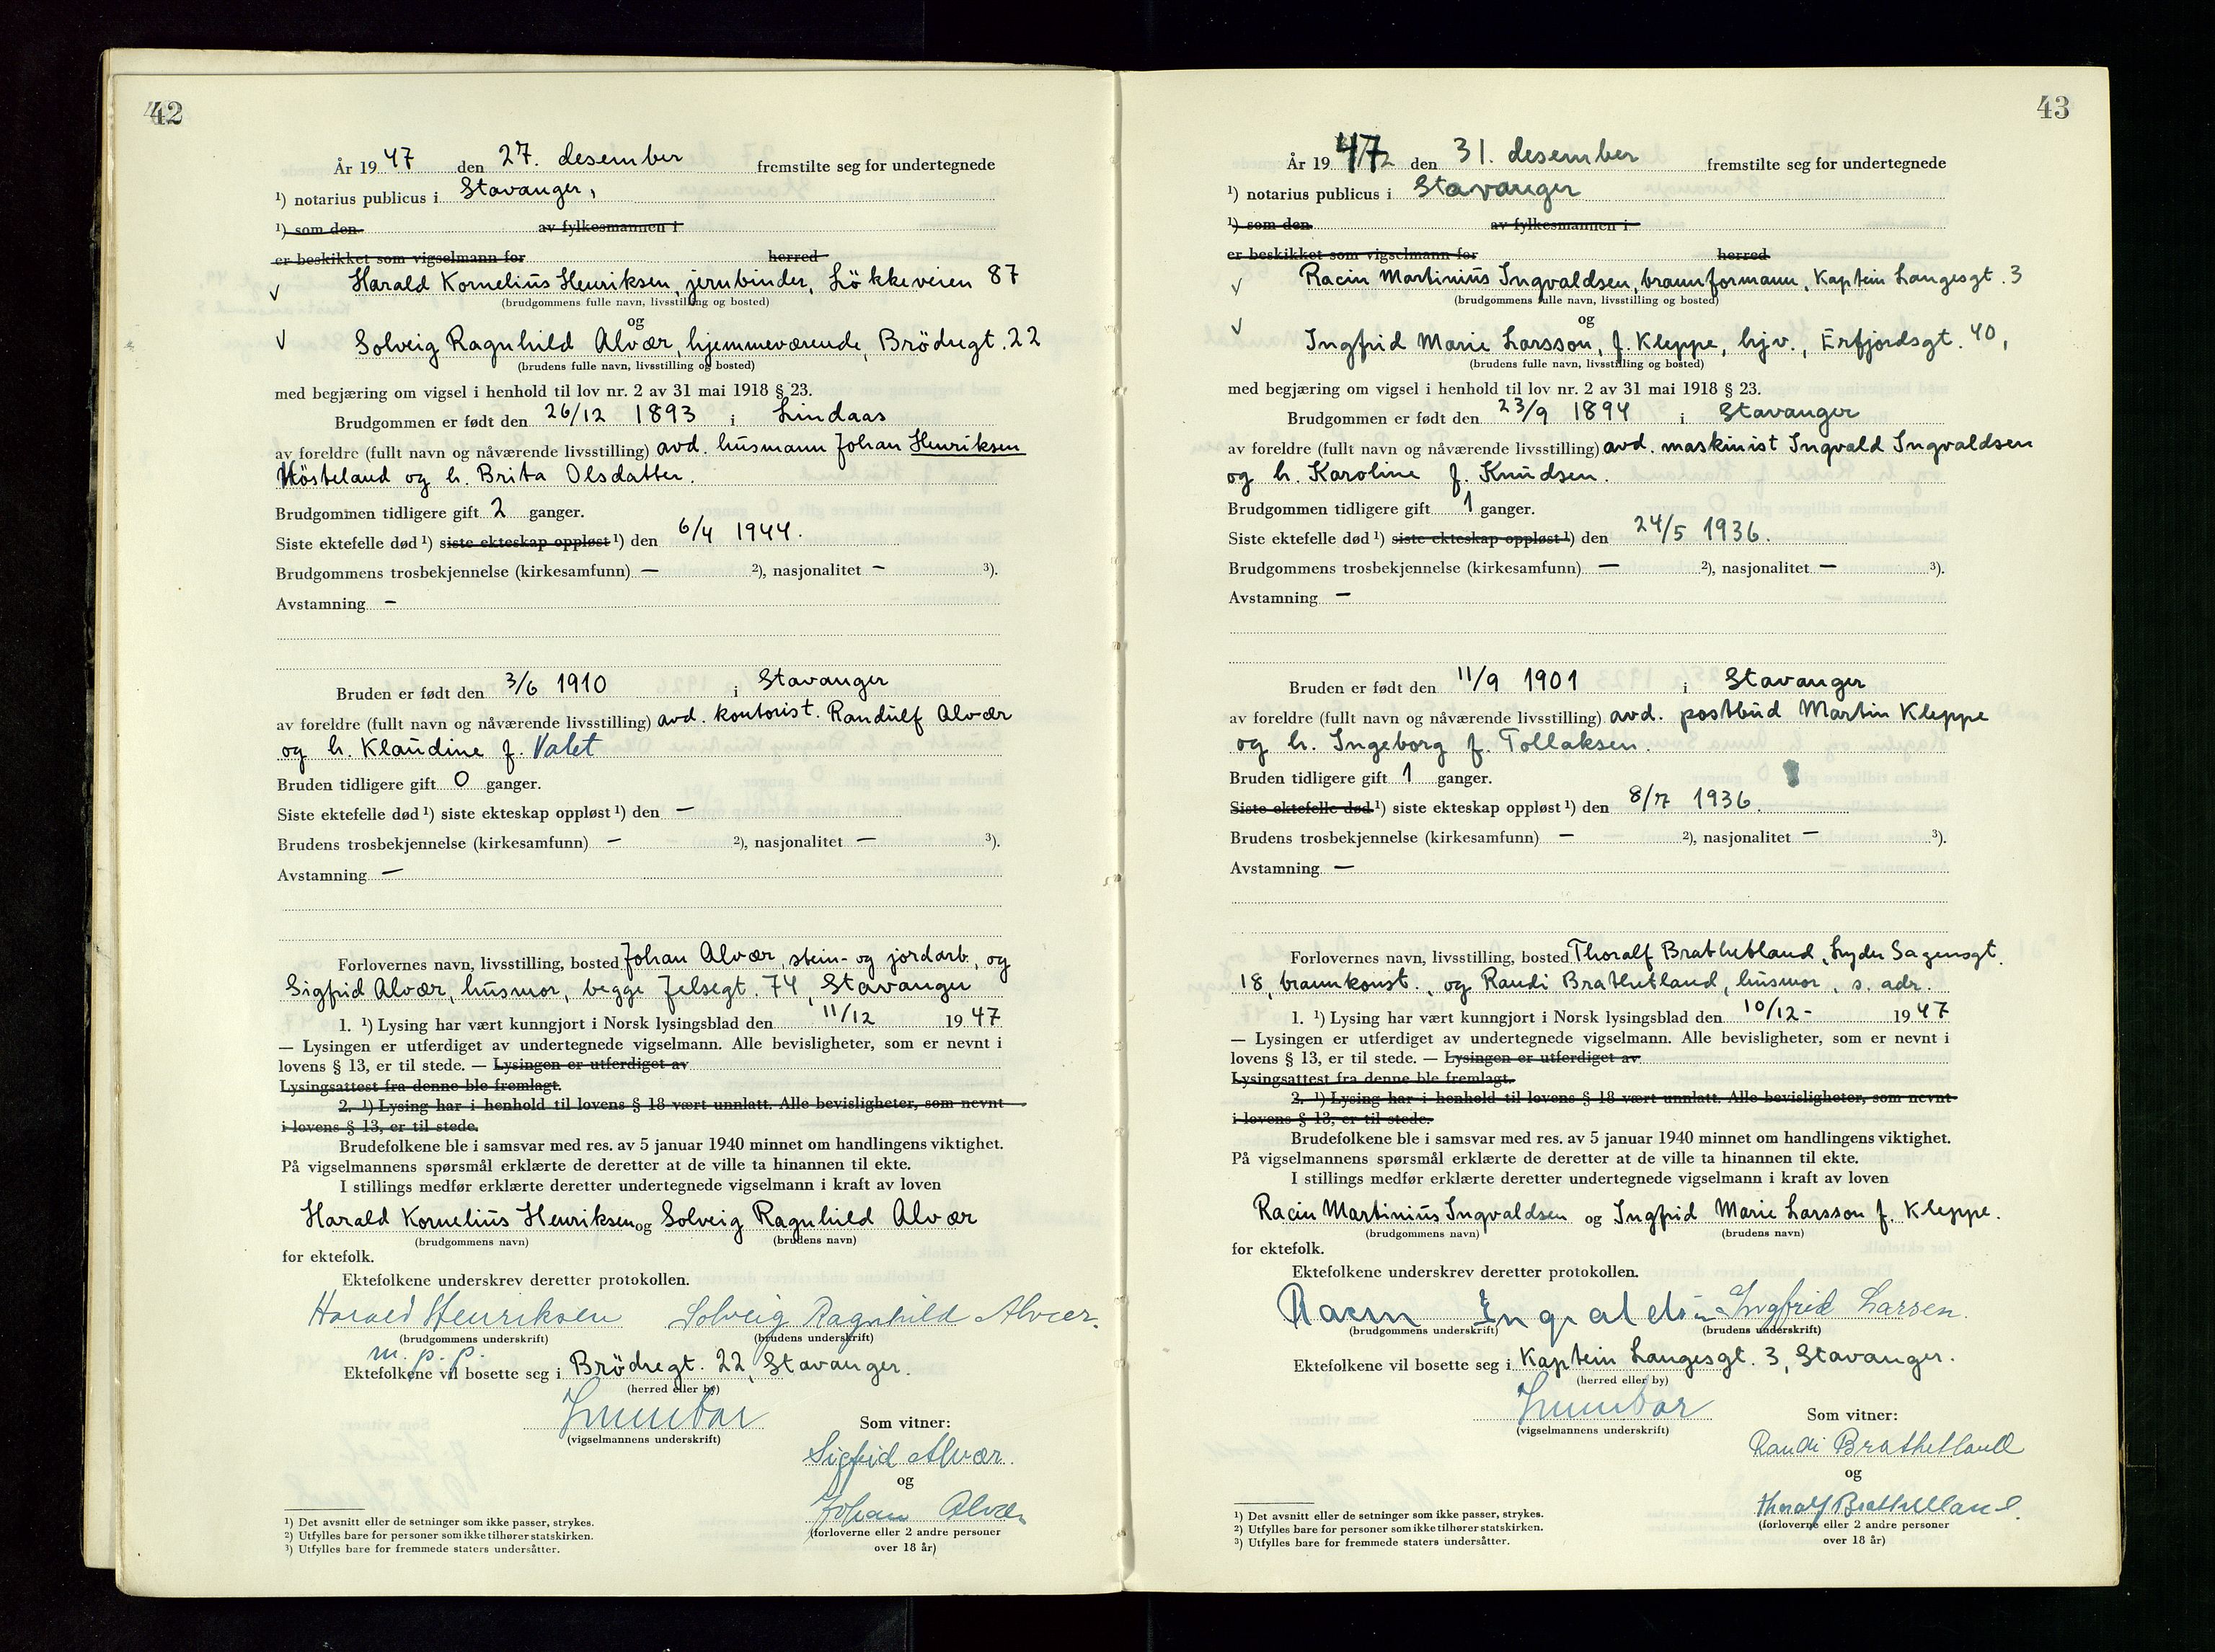 42
År 19 47 den 27. desember fremstilte seg for undertegnede
¹) notarius publicus i Stavanger,
¹) som den av fylkesmannen i
er beskikket som vigselmann for herred
Harald Kornelius Henriksen, jernbinder, Løkkeveien 87
(brudgommens fulle navn, livsstilling og bosted)
og
Solveig Ragnhild Alvær, hjemmeværende, Brödregt. 22
(brudens fulle navn, livsstilling og bosted)
med begjæring om vigsel i henhold til lov nr. 2 av 31 mai 1918 § 23.
Brudgommen er født den 26/12 1893 i Lindaas
av foreldre (fullt navn og nåværende livsstilling) avd. husmann Johan Henriksen
Høsteland og h. Brita Olsdatter.
Brudgommen tidligere gift 2 ganger.
Siste ektefelle død ¹) siste ekteskap oppløst ¹) den 6/4 1944.
Brudgommens trosbekjennelse (kirkesamfunn) — ²), nasjonalitet — ³).
Avstamning —
Bruden er født den 3/6 1910 i Stavanger
av foreldre (fullt navn og nåværende livsstilling) avd. kontorist. Randulf Alvær
og h. Klaudine f. Valet
Bruden tidligere gift 0 ganger.
Siste ektefelle død ¹) siste ekteskap oppløst ¹) den —
Brudens trosbekjennelse (kirkesamfunn) — ²), nasjonalitet — ³).
Avstamning —
Forlovernes navn, livsstilling, bosted Johan Alvær, stein- og jordarb., og
Sigfrid Alvær, husmor, begge Jelsegt. 74, Stavanger
1. ¹) Lysing har vært kunngjort i Norsk lysingsblad den 11/12 19 47
— Lysingen er utferdiget av undertegnede vigselmann. Alle bevisligheter, som er nevnt i
lovens § 13, er til stede. — Lysingen er utferdiget av
Lysingsattest fra denne ble fremlagt.
2. ¹) Lysing har i henhold til lovens § 18 vært unnlatt. Alle bevisligheter, som nevnt
i lovens § 13, er til stede.
Brudefolkene ble i samsvar med res. av 5 januar 1940 minnet om handlingens viktighet.
På vigselmannens spørsmål erklærte de deretter at de ville ta hinannen til ekte.
I stillings medfør erklærte deretter undertegnede vigselmann i kraft av loven
Harald Kornelius Henriksen og Solveig Ragnhild Alvær
(brudgommens navn) (brudens navn)
for ektefolk.
Ektefolkene underskrev deretter protokollen.
Harald Henriksen Solveig Ragnhild Alvær.
(brudgommens underskrift) (brudens underskrift)
m. p. p.
Ektefolkene vil bosette seg i Brödregt. 22, Stavanger.
(herred eller by)
(vigselmannens underskrift)
Som vitner:
Sigfrid Alvær.
og
Johan Alvær
(forloverne eller 2 andre personer
over 18 år)
¹) Det avsnitt eller de setninger som ikke passer, strykes.
²) Utfylles bare for personer som ikke tilhører statskirken.
³) Utfylles bare for fremmede staters undersåtter.
43
År 19 47 den 31. desember fremstilte seg for undertegnede
¹) notarius publicus i Stavanger
¹) som den av fylkesmannen i
er beskikket som vigselmann for herred
Racin Martinius Ingvaldsen, brannformann, Kaptein Langesgt. 3
(brudgommens fulle navn, livsstilling og bosted)
og
Ingfrid Marie Larsson, f. Kleppe, hjv., Erfjordsgt. 40,
(brudens fulle navn, livsstilling og bosted)
med begjæring om vigsel i henhold til lov nr. 2 av 31 mai 1918 § 23.
Brudgommen er født den 23/9 1894 i Stavanger
av foreldre (fullt navn og nåværende livsstilling) avd. maskinist Ingvald Ingvaldsen
og h. Karoline f. Knudsen.
Brudgommen tidligere gift 1 ganger.
Siste ektefelle død ¹) siste ekteskap oppløst ¹) den 24/5 1936.
Brudgommens trosbekjennelse (kirkesamfunn) — ²), nasjonalitet — ³).
Avstamning —
Bruden er født den 11/9 1901 i Stavanger
av foreldre (fullt navn og nåværende livsstilling) avd. postbud Martin Kleppe
og h. Ingeborg f. Tollaksen.
Bruden tidligere gift 1 ganger.
Siste ektefelle død ¹) siste ekteskap oppløst ¹) den 8/7 1936.
Brudens trosbekjennelse (kirkesamfunn) — ²), nasjonalitet — ³).
Avstamning —
Forlovernes navn, livsstilling, bosted Thoralf Brathetland, Lyder Sagensgt.
18, brannkonst., og Randi Brathetland, husmor, s. adr.
1. ¹) Lysing har vært kunngjort i Norsk lysingsblad den 10/12 - 19 47
— Lysingen er utferdiget av undertegnede vigselmann. Alle bevisligheter, som er nevnt i
lovens § 13, er til stede. — Lysingen er utferdiget av
Lysingsattest fra denne ble fremlagt.
2. ¹) Lysing har i henhold til lovens § 18 vært unnlatt. Alle bevisligheter, som nevnt
i lovens § 13, er til stede.
Brudefolkene ble i samsvar med res. av 5 januar 1940 minnet om handlingens viktighet.
På vigselmannens spørsmål erklærte de deretter at de ville ta hinannen til ekte.
I stillings medfør erklærte deretter undertegnede vigselmann i kraft av loven
Racin Martinius Ingvaldsen og Ingfrid Marie Larsson f. Kleppe.
(brudgommens navn) (brudens navn)
for ektefolk.
Ektefolkene underskrev deretter protokollen.
Racin Ingvaldsen Ingfrid Larsen.
(brudgommens underskrift) (brudens underskrift)
Ektefolkene vil bosette seg i Kaptein Langesgt. 3, Stavanger.
(herred eller by)
(vigselmannens underskrift)
Som vitner:
Randi Brathetland
og
Thoralf Brathetland.
(forloverne eller 2 andre personer
over 18 år)
¹) Det avsnitt eller de setninger som ikke passer, strykes.
²) Utfylles bare for personer som ikke tilhører statskirken.
³) Utfylles bare for fremmede staters undersåtter.